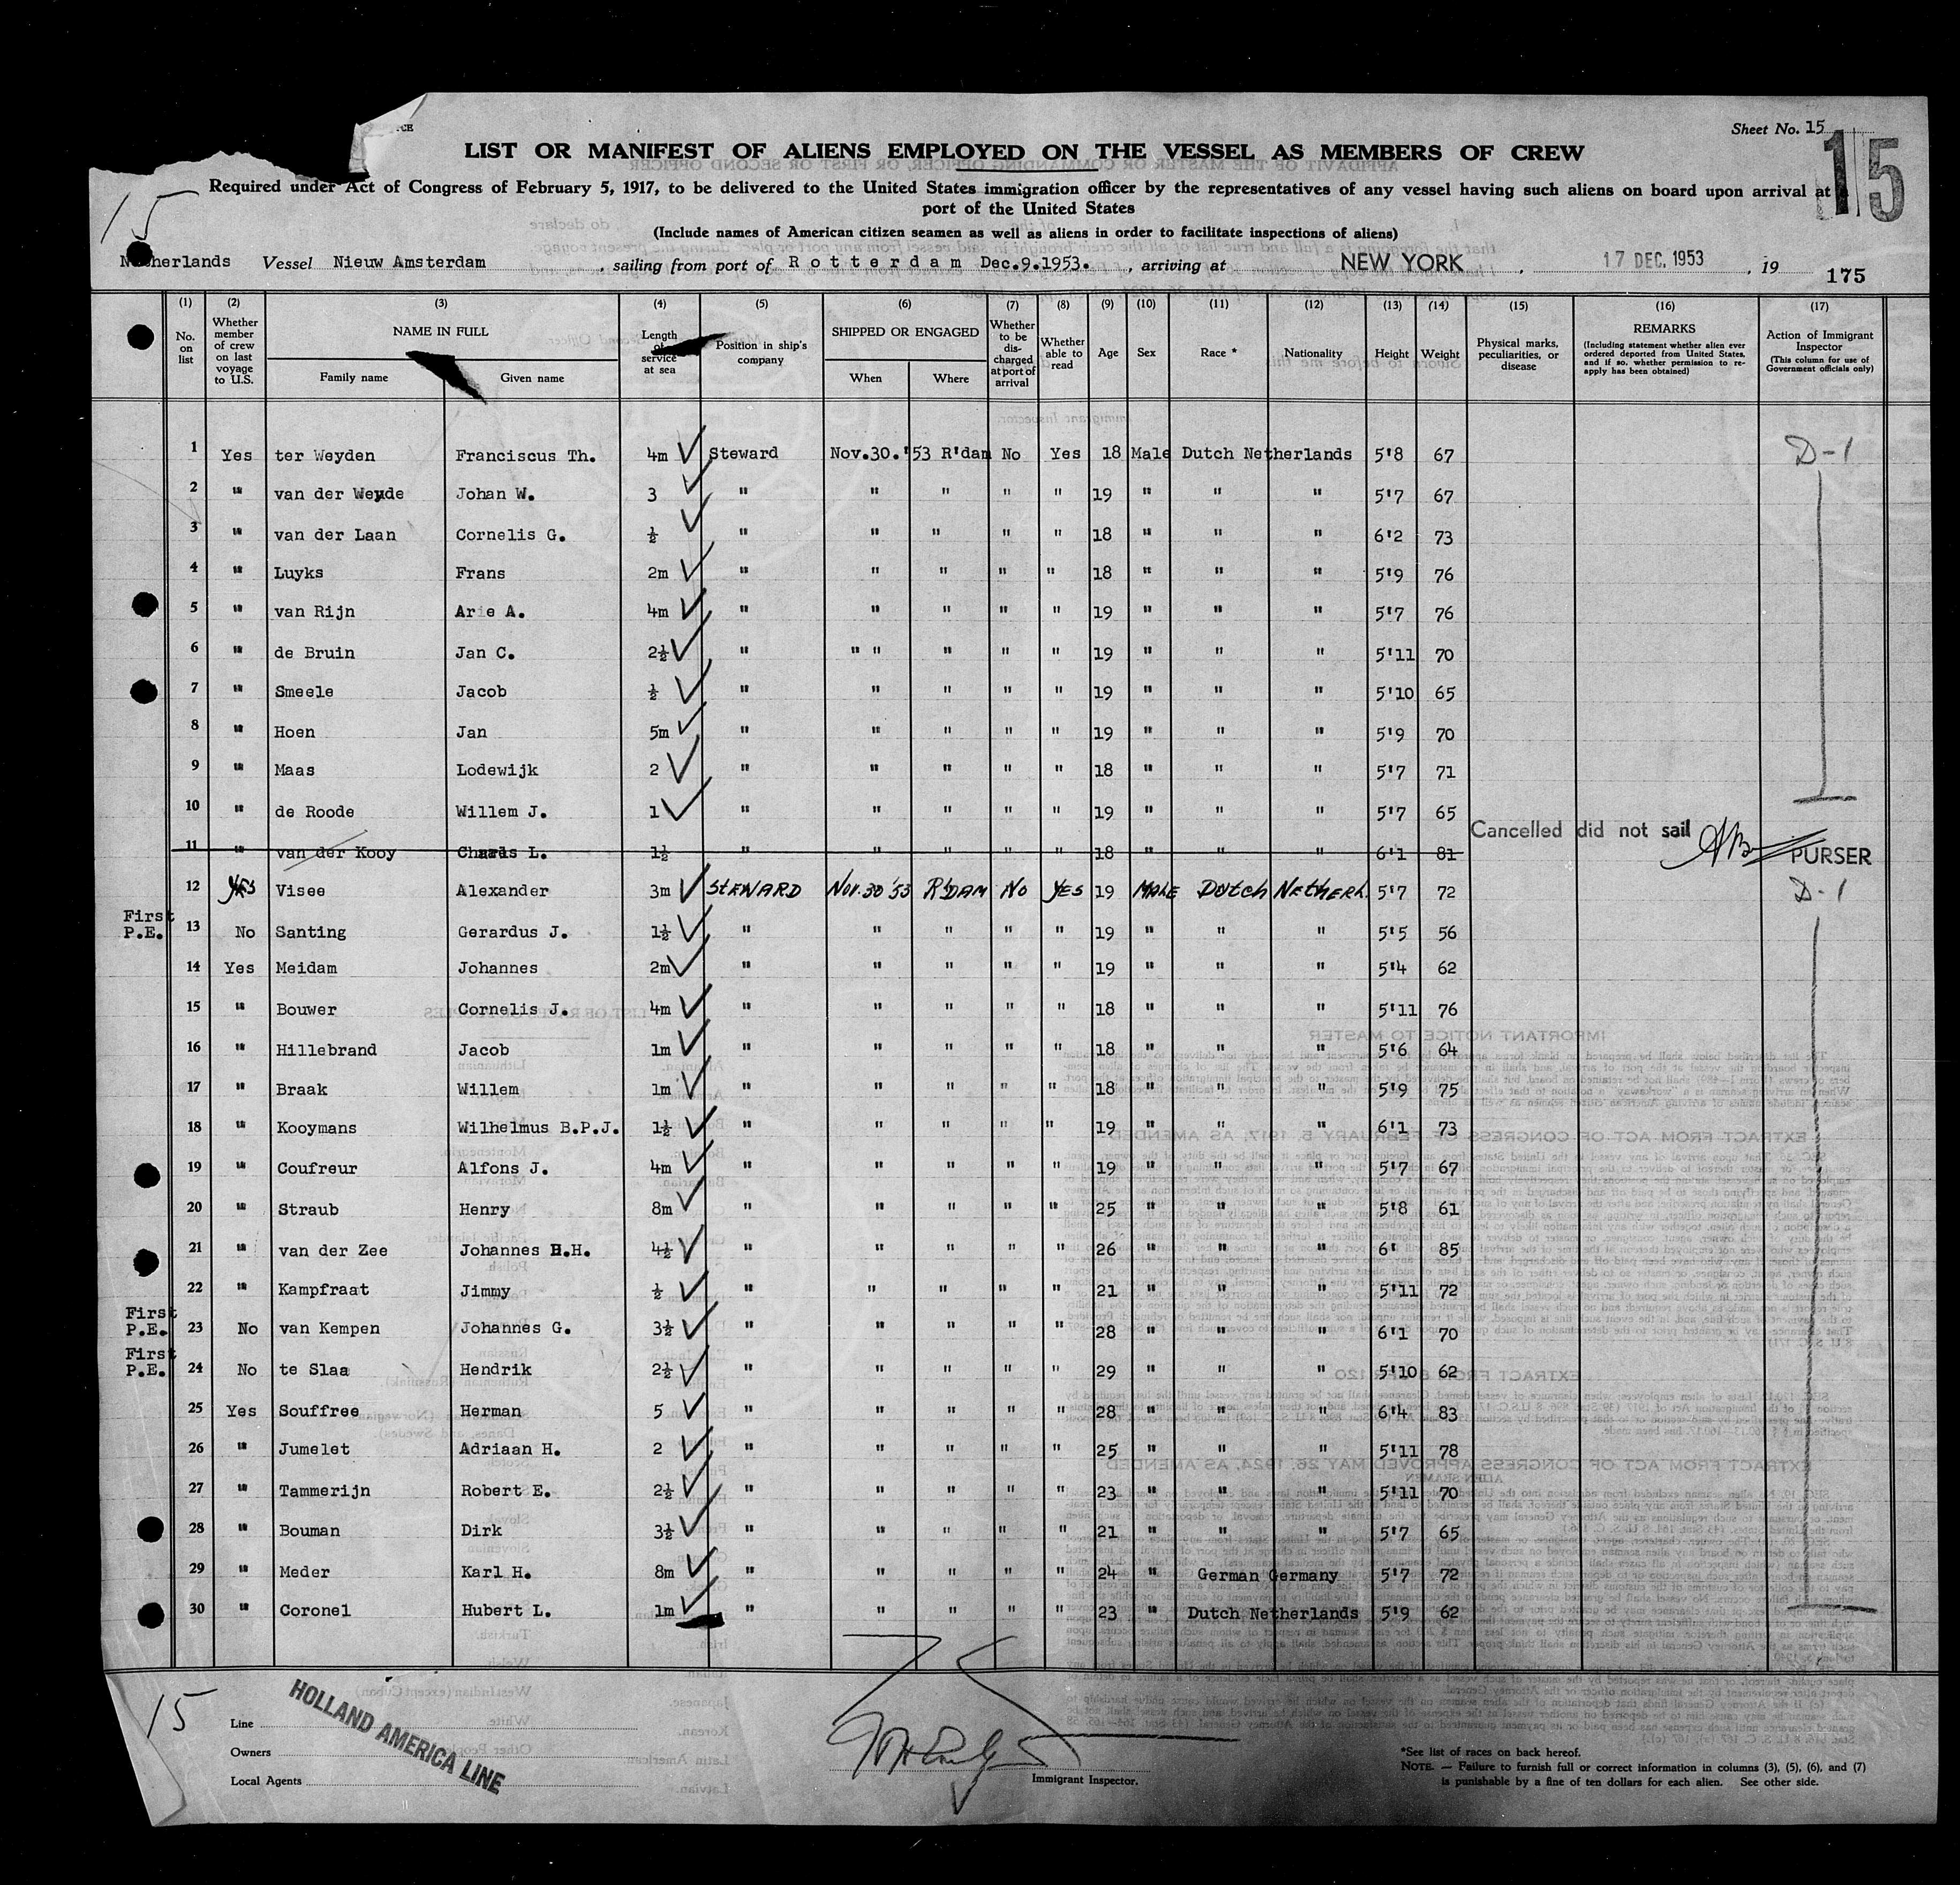 CE
Sheet No. 15
15
LIST OR MANIFEST OF ALIENS EMPLOYED ON THE VESSEL AS MEMBERS OF CREW
15
Required under Act of Congress of February 5, 1917, to be delivered to the United States immigration officer by the representatives of any vessel having such aliens on board upon arrival at
port of the United States
(Include names of American citizen seamen as well as aliens in order to facilitate inspections of aliens)
Netherlands Vessel Nieuw Amsterdam , sailing from port of Rotterdam Dec.9.1953. , arriving at NEW YORK , 17 DEC. 1953 , 19 175
(1) (2) (3) (4) (5) (6) (7) (8) (9) (10) (11) (12) (13) (14) (15) (16) (17)
No. on list Whether member of crew on last voyage to U.S. NAME IN FULL Family name Given name Length of service at sea Position in ship's company SHIPPED OR ENGAGED When Where Whether to be discharged at port of arrival Whether able to read Age Sex Race * Nationality Height Weight Physical marks, peculiarities, or disease REMARKS (Including statement whether alien ever ordered deported from United States, and if so, whether permission to re-apply has been obtained) Action of Immigrant Inspector (This column for use of Government officials only)
1 Yes ter Weyden Franciscus Th. 4m Steward Nov.30.'53 R'dam No Yes 18 Male Dutch Netherlands 5'8 67 D-1
2 " van der Weyde Johan W. 3 " " " " " 19 " " " 5'7 67
3 " van der Laan Cornelis G. ½ " " " " " 18 " " " 6'2 73
4 " Luyks Frans 2m " " " " " 18 " " " 5'9 76
5 " van Rijn Arie A. 4m " " " " " 19 " " " 5'7 76
6 " de Bruin Jan C. 2½ " " " " " " 19 " " " 5'11 70
7 " Smeele Jacob ½ " " " " " 19 " " " 5'10 65
8 " Hoen Jan 5m " " " " " 19 " " " 5'9 70
9 " Maas Lodewijk 2 " " " " " 18 " " " 5'7 71
10 " de Roode Willem J. 1 " " " " " 19 " " " 5'7 65
Cancelled did not sail PURSER
11 " van der Kooy Charls L. 1½ " " " " " 18 " " " 6'1 81
12 Yes Visee Alexander 3m STEWARD Nov.30'53 R'DAM No YES 19 MALE Dutch NETHERL. 5'7 72 D-1
First P.E. 13 No Santing Gerardus J. 1½ " " " " " 19 " " " 5'5 56
14 Yes Meidam Johannes 2m " " " " " 19 " " " 5'4 62
15 " Bouwer Cornelis J. 4m " " " " " 18 " " " 5'11 76
16 " Hillebrand Jacob 1m " " " " " 18 " " " 5'6 64
17 " Braak Willem 1m " " " " " 18 " " " 5'9 75
18 " Kooymans Wilhelmus B.P.J. 1½ " " " " " 19 " " " 6'1 73
19 " Coufreur Alfons J. 4m " " " " " 19 " " " 5'7 67
20 " Straub Henry 8m " " " " " 25 " " " 5'8 61
21 " van der Zee Johannes H.H. 4½ " " " " " 26 " " " 6' 85
22 " Kampfraat Jimmy ½ " " " " " 21 " " " 5'11 72
First P.E. 23 No van Kempen Johannes G. 3½ " " " " " 28 " " " 6'1 70
First P.E. 24 No te Slaa Hendrik 2½ " " " " " 29 " " " 5'10 62
25 Yes Souffree Herman 5 " " " " " 28 " " " 6'4 83
26 " Jumelet Adriaan H. 2 " " " " " 25 " " " 5'11 78
27 " Tammerijn Robert E. 2½ " " " " " 23 " " " 5'11 70
28 " Bouman Dirk 3½ " " " " " 21 " " " 5'7 65
29 " Meder Karl H. 8m " " " " " 24 " German Germany 5'7 72
30 " Coronel Hubert L. 1m " " " " " 23 " Dutch Netherlands 5'9 62
15
HOLLAND AMERICA LINE
Line
Owners
Local Agents
Immigrant Inspector.
*See list of races on back hereof.
NOTE. — Failure to furnish full or correct information in columns (3), (5), (6), and (7)
is punishable by a fine of ten dollars for each alien. See other side.